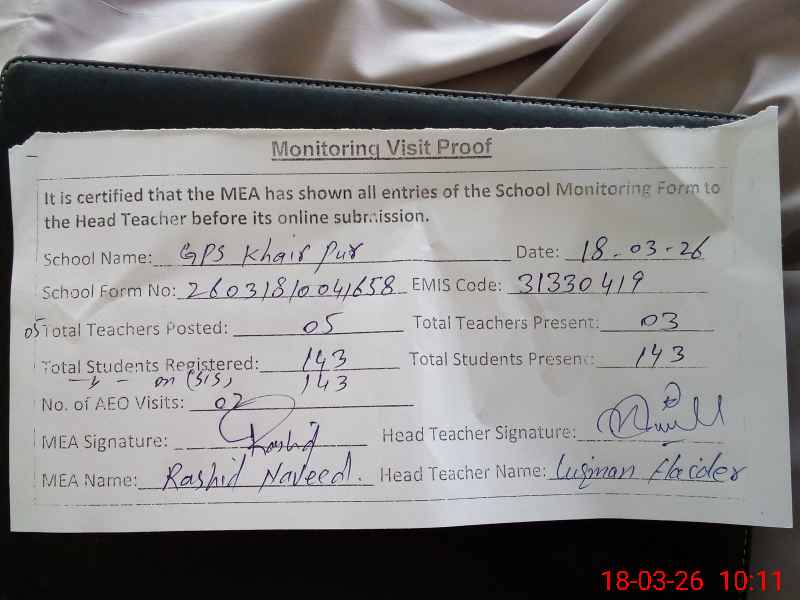 Monitoring Visit Proof
It is certified that the MEA has shown all entries of the School Monitoring Form to
the Head Teacher before its online submission.
School Name: GPS Khair Pur Date: 18.03-26
School Form No: 26031810041658 EMIS Code: 31330419
05 Total Teachers Posted: 05 Total Teachers Present: 03
Total Students Registered: 143 Total Students Present: 143
on (SIS) 143
No. of AEO Visits: 02
MEA Signature: Rashid Head Teacher Signature:
MEA Name: Rashid Naveed. Head Teacher Name: Luqman Haider
18-03-26 10:11